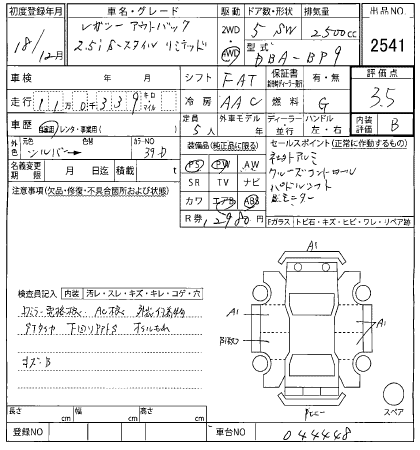 初度登録年月 車名・グレード 駆動 ドア数・形状 排気量 出品NO
18/12月 レガシー アウトバック 2WD 5 SW 2500cc 2541
2.5i S-スタイル リミテッド 4WD 型式 DBA-BP9
車検 年 月 シフト FAT 保証書 有・無 評価点
走行 11万0千339 キロ マイル 冷房 AAC 燃料 G 3.5
車歴 自家用 レンタ・事業用( ) 定員 5人 外車モデル 年 ディーラー 並行 ハンドル 左・右 内装評価 B
外色 元色 シルバー 色替 カラーNO 39D
装備品(純正品に限る) セールスポイント(正常に作動するもの)
名義変更期限 月 日迄 積載 t
PS PW AW
SR TV ナビ
カワ エアB ABS
R券 12980円
社外アルミ
クルーズコントロール
パドルシフト
B.モニター
注意事項(欠品・修復・不具合箇所および状態)
Fガラス トビ石・キズ・ヒビ・ワレ・リペア跡
検査員記入 内装 汚レ・スレ・キズ・キレ・コゲ・穴
キズ・B
A1
A1
A1
スペア
長さ cm 幅 cm 高さ cm
登録NO 車台NO 044448